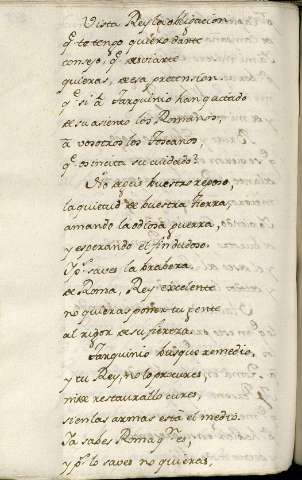 Vista Rey la obligacion
q̃ te tengo quiero darte
consejo, q̃ desviarte
quieras, de esa pretension.
q̃ si a Tarquinio han quitado
de su asiento los Romanos,
a vosotros los Toscanos,
q̃ os incita su cuidado?
No dejeis vuestro reposo,
la quietud de vuestra tierra,
amando la odiosa guerra,
y esperando el fin dudoso.
Tu saves la brabeza
de Roma, Rey excelente
no quieras poner tu gente
al rigor de su fiereza.
Tarquinio busque remedio,
y tu Rey, no lo procures,
ni de restaurallo cures,
si en las armas está el medio.
Ya sabes Roma q̃ es,
y pͤs lo saves no quieras,